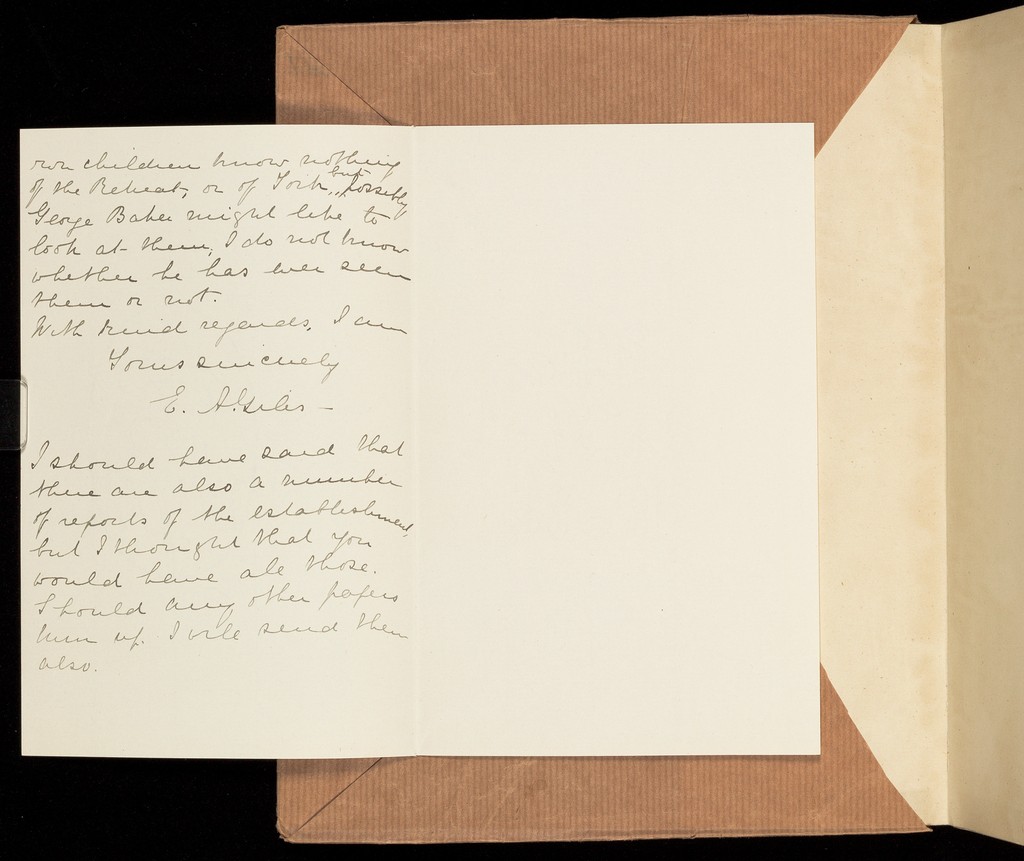 own children know nothing
of the Retreat, or of York, but possibly
George Baker might like to
look at them, I do not know
whether he has ever seen
them or not.
With kind regards, I am
Yours sincerely
E. A. Giles –
I should have said that
there are also a number
of reports of the establishment,
but I thought that you
would have all those.
Should any other papers
turn up. I will send them
also.